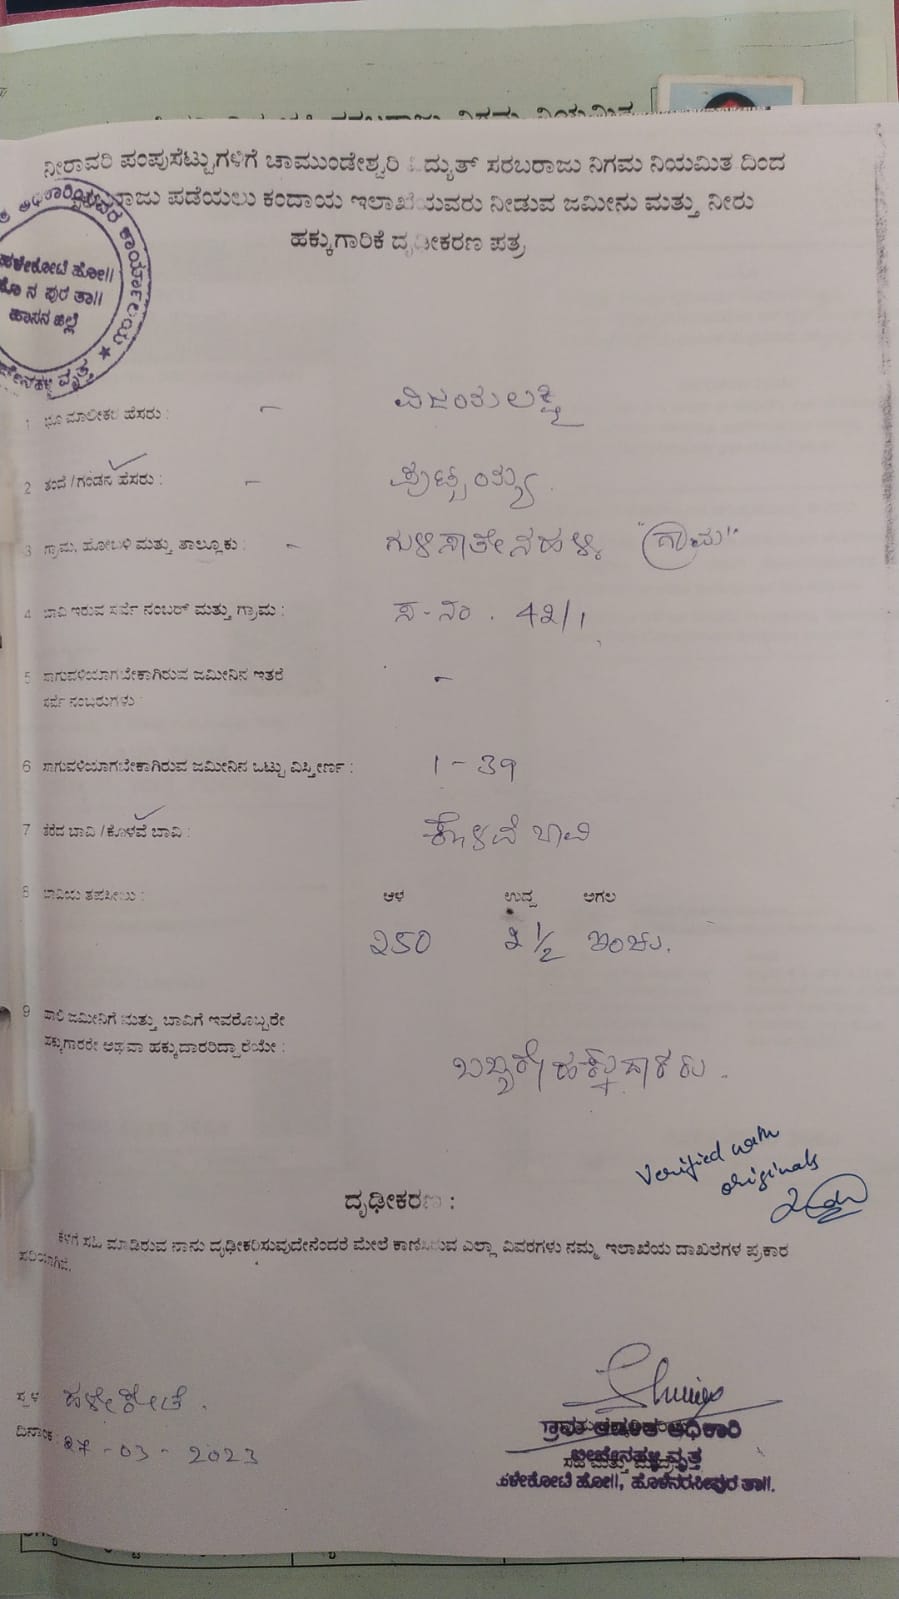 ನೀರಾವರಿ ಪಂಪುಸೆಟ್ಟುಗಳಿಗೆ ಚಾಮುಂಡೇಶ್ವರಿ ವಿದ್ಯುತ್ ಸರಬರಾಜು ನಿಗಮ ನಿಯಮಿತ ದಿಂದ
ಸರಬರಾಜು ಪಡೆಯಲು ಕಂದಾಯ ಇಲಾಖೆಯವರು ನೀಡುವ ಜಮೀನು ಮತ್ತು ನೀರು
ಹಕ್ಕುಗಾರಿಕೆ ದೃಢೀಕರಣ ಪತ್ರ
ಹಳೇಕೋಟೆ ಹೋ||
ಹೊ ನ ಪುರ ತಾ||
ಹಾಸನ ಜಿಲ್ಲೆ
1 ಭೂ ಮಾಲೀಕರ ಹೆಸರು : - ವಿಜಯಲಕ್ಷ್ಮಿ
2 ತಂದೆ / ಗಂಡನ ಹೆಸರು : - ಪುಟ್ಟಯ್ಯ.
3 ಗ್ರಾಮ, ಹೋಬಳಿ ಮತ್ತು ತಾಲ್ಲೂಕು : - ಗುಳಿಸಾತೇನಹಳ್ಳಿ "ಗ್ರಾಮ"
4 ಬಾವಿ ಇರುವ ಸರ್ವೆ ನಂಬರ್ ಮತ್ತು ಗ್ರಾಮ : ಸ-ನಂ. 42/1
5 ಸಾಗುವಳಿಯಾಗಬೇಕಾಗಿರುವ ಜಮೀನಿನ ಇತರೆ -
ಸರ್ವೆ ನಂಬರುಗಳು :
6 ಸಾಗುವಳಿಯಾಗಬೇಕಾಗಿರುವ ಜಮೀನಿನ ಒಟ್ಟು ವಿಸ್ತೀರ್ಣ : 1-39
7 ತೆರೆದ ಬಾವಿ / ಕೊಳವೆ ಬಾವಿ : ಕೊಳವೆ ಬಾವಿ
8 ಬಾವಿಯ ತಪಸೀಲು : ಆಳ ಉದ್ದ ಅಗಲ
250 2 1/2 ಇಂಚು.
9 ಸಾಲಿ ಜಮೀನಿಗೆ ಮತ್ತು ಬಾವಿಗೆ ಇವರೊಬ್ಬರೇ
ಹಕ್ಕುಗಾರರೇ ಅಥವಾ ಹಕ್ಕುದಾರರಿದ್ದಾರೆಯೇ : ಒಬ್ಬರೇ ಹಕ್ಕುದಾರರು.
Verified with
originals
ದೃಢೀಕರಣ :
ಕೆಳಗೆ ಸಹಿ ಮಾಡಿರುವ ನಾನು ದೃಢೀಕರಿಸುವುದೇನೆಂದರೆ ಮೇಲೆ ಕಾಣಿಸಿರುವ ಎಲ್ಲಾ ವಿವರಗಳು ನಮ್ಮ ಇಲಾಖೆಯ ದಾಖಲೆಗಳ ಪ್ರಕಾರ
ಸರಿಯಾಗಿವೆ.
ಸ್ಥಳ ಹಳೇಕೋಟೆ.
ದಿನಾಂಕ : 27-03-2023
ಗ್ರಾಮ ಆಡಳಿತ ಅಧಿಕಾರಿ
ವೃತ್ತ
ಹಳೇಕೋಟೆ ಹೋ||, ಹೊಳೆನರಸೀಪುರ ತಾ||.